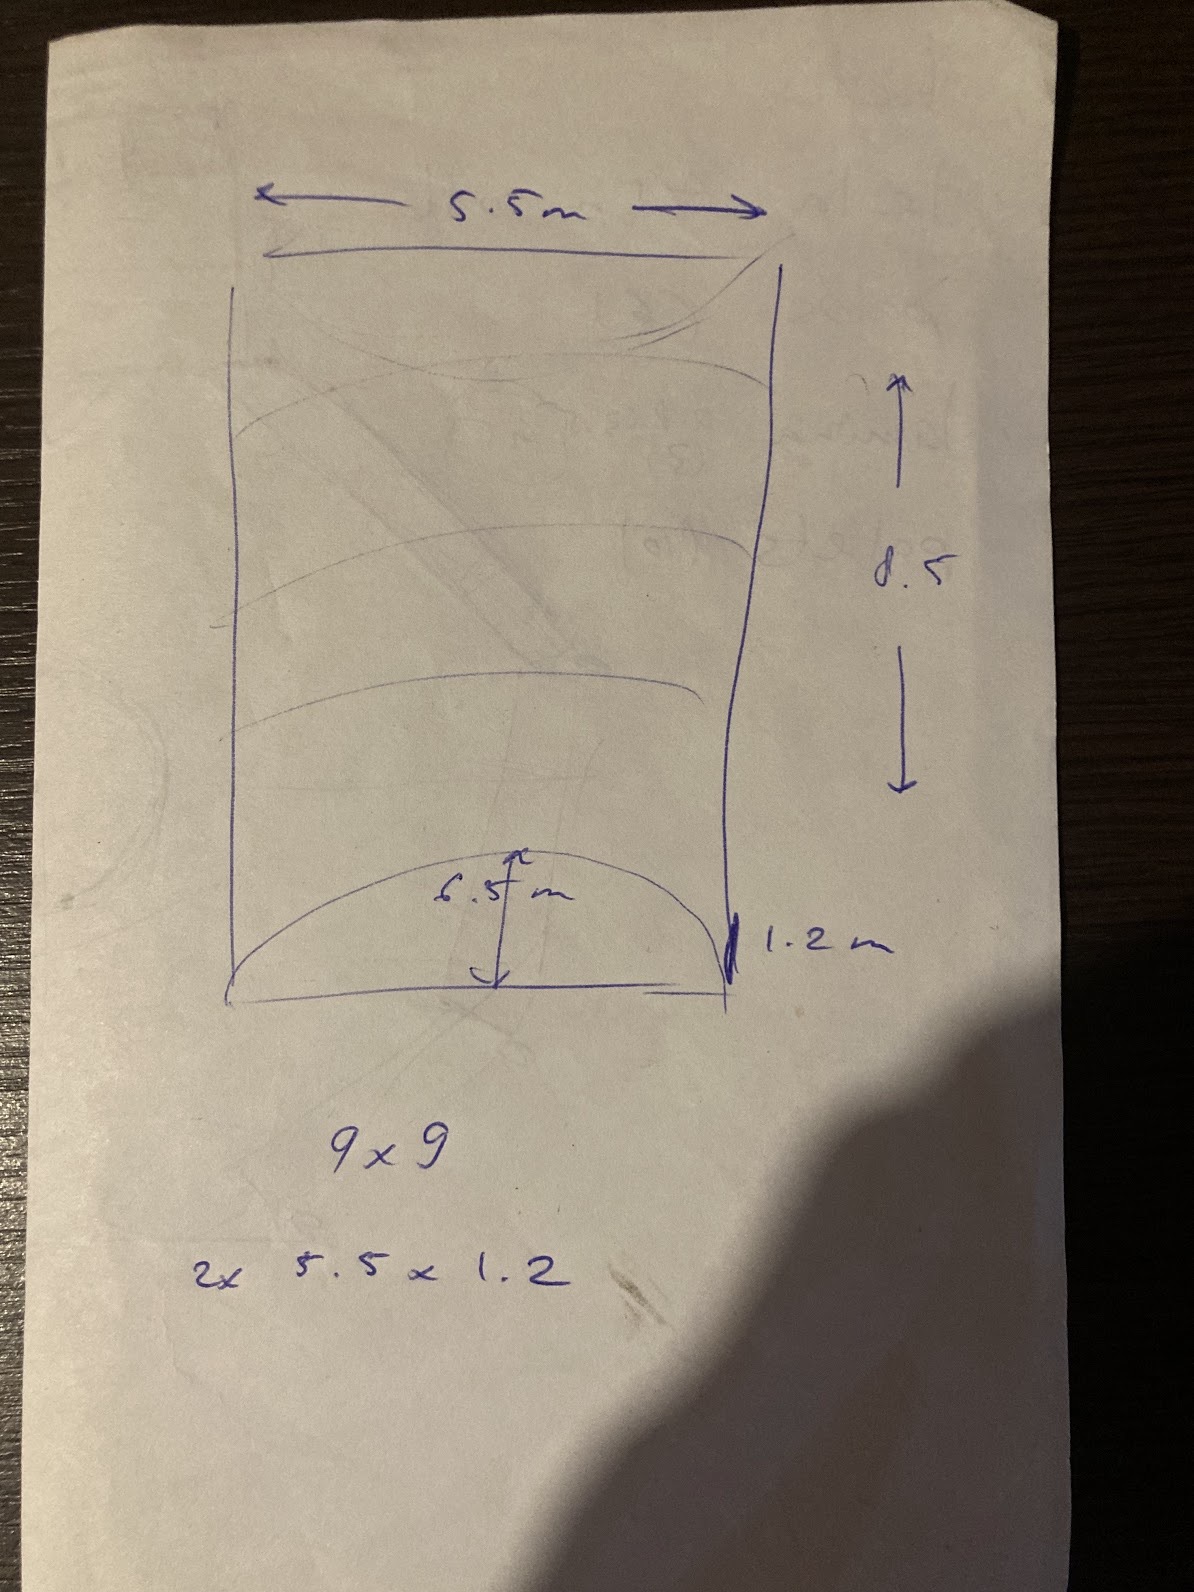 5.5m
8.5
6.5 m
1.2 m
9 x 9
2x 5.5 x 1.2